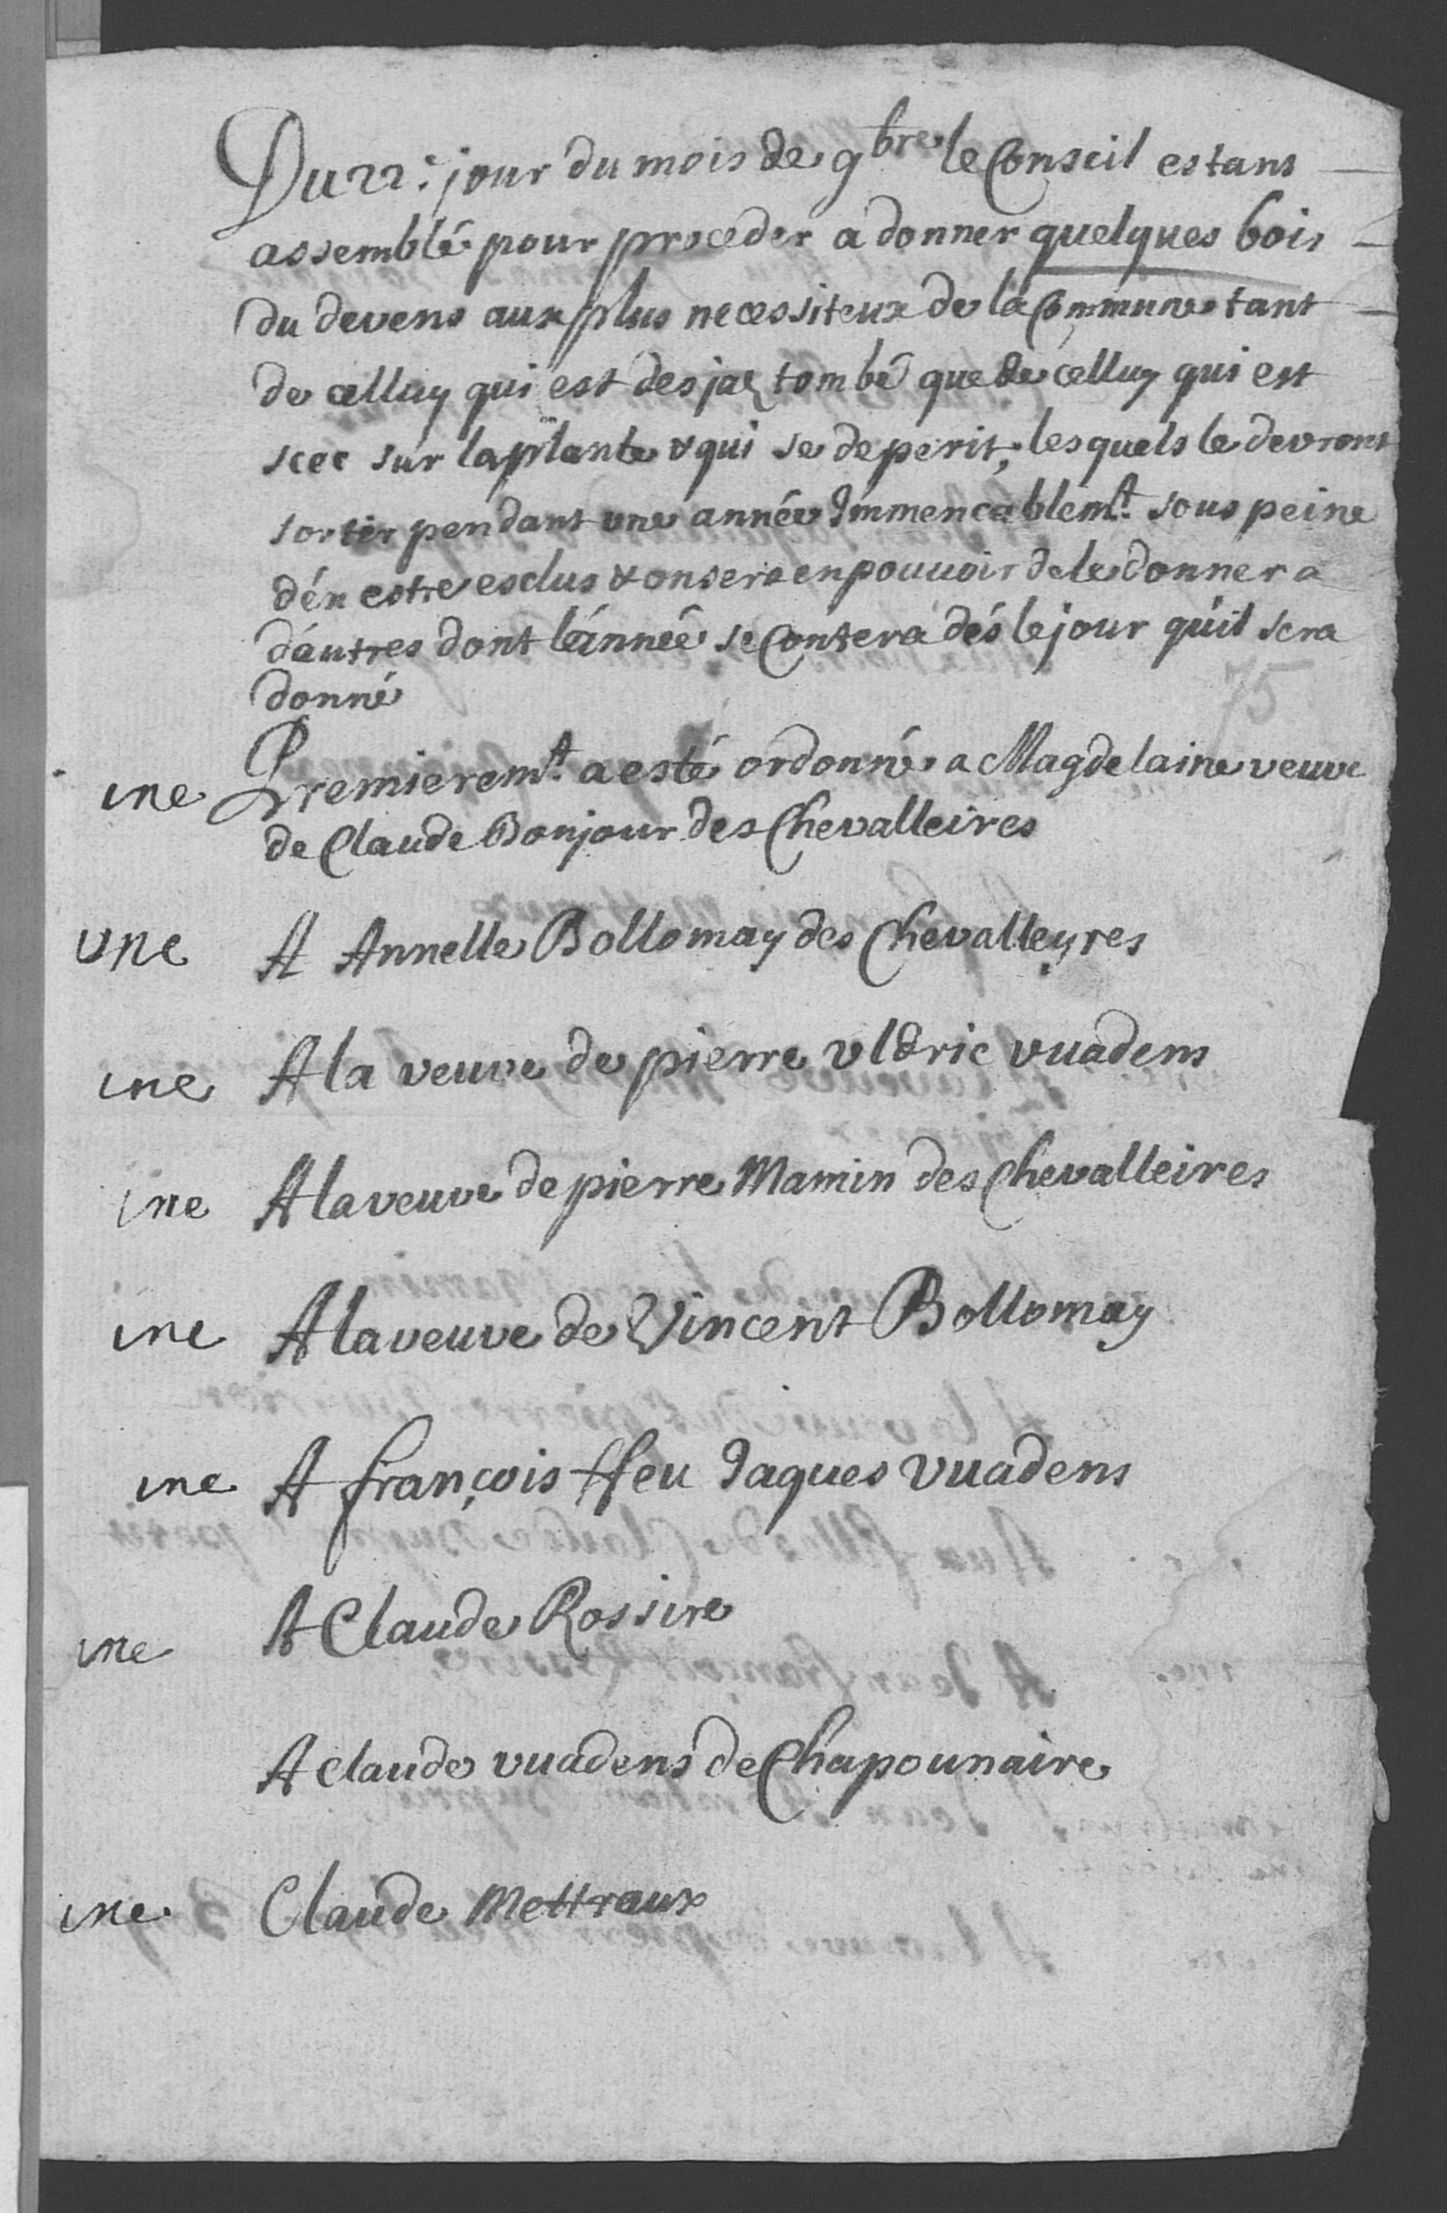 Du 22: jour du mois de 9bre le Conseil estans
assemblé pour proceder a donner quelques bois
du devens aux plus necessiteux de la Commune tant
de celluy qui est desjaz tombé que de celluy qui est
scec sur la plante & qui se deperit, lesquels le devront
sortir pendant une année Immencablemt. sous peine
d'én estre esclus & on sera en pouuoir de le donner a
d'áutres dont l'ánnée se Contera dés le jour qu'il sera
donné
75
une Premieremt. a esté ordonné a Magdelaine veuve
de Claude Bonjour des Chevalleires
une A Annelle Bollomay des Chevalleyres
une A la veuve de pierre vldric vuadens
une A la veuve de pierre Mamin des Chevalleires
une A la veuve de Vincent Bollomay
une A françois ffeu Jaques vuadens
une A Claude Rossire
A claude vuadens de Chapounaire
une Claude Mettraux